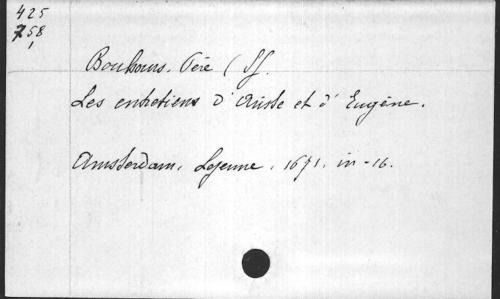 425
758
1
Bouhours, Père ( SJ.
Les entretiens d'Ariste et d'Eugène.
Amsterdam, Lejeune, 1671. in-16.